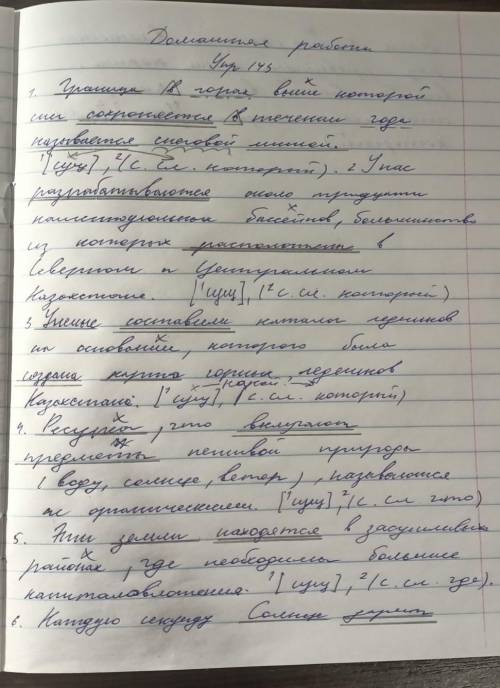 Домашняя работа
Упр 143
1. Граница (в горах, выше которой
снег сохраняется (в течении года
называется снеговой линией.
¹[сущ], ²(с. сл. который). 2 У нас
разрабатываются около тридцати
бассейнов, большинство
из которых расположены в
Северном и Центральном
Казахстане. [¹сущ], (²с. сл. который)
3 Ученые составили каталог ледников
на основании, которого была
создана карта горных ледников
Казахстана. [¹сущ], (с. сл. который)
4. Ресурсы, что включают
предметы неживой природы
(воду, солнце, ветер), называются
органическими. [¹сущ], ²(с. сл что)
5. Эти земли находятся в засушливых
районах, где необходимы большие
капиталовложения. ¹[сущ], ²(с. сл. где).
6. Каждую секунду Солнце